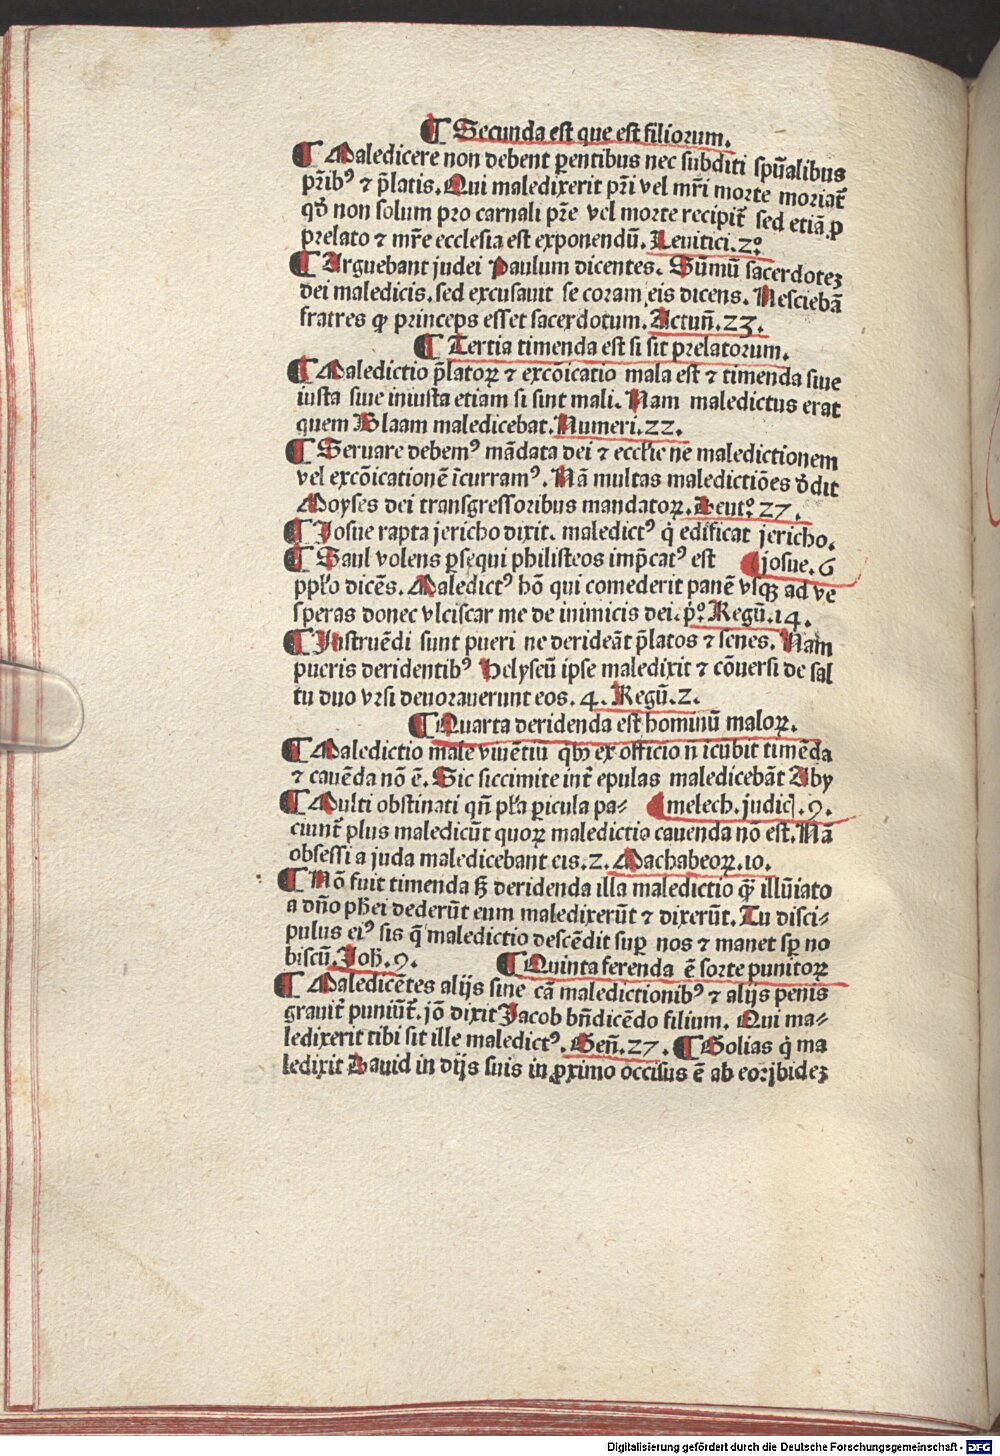 ¶ Secunda est que est filiorum.
¶ Maledicere non debent pentibus nec subditi spūalibus
pr̄ibꝰ ⁊ p̄latis. Qui maledixerit pr̄i vel mr̄i morte moriat̄
qd̄ non solum pro carnali pr̄e vel morte recipit̄ sed etiā ꝓ
prelato ⁊ mr̄e ecclesia est exponendū. Leuitici. 2º
¶ Arguebant judei Paulum dicentes. Sūmū sacerdotez
dei maledicis. sed excusauit se coram eis dicens. Nesciebā
fratres ꝙ princeps esset sacerdotum. Actuū. 23.
¶ Tertia timenda est si sit prelatorum.
¶ Maledictio p̄latoꝝ ⁊ excōicatio mala est ⁊ timenda siue
iusta siue iniusta etiam si sint mali. Nam maledictus erat
quem Blaam maledicebat. Numeri. 22.
¶ Seruare debemꝰ mādata dei ⁊ eccl'ie ne maledictionem
vel excōicationē īcurramꝰ. Nā multas maledictiōes d̄dit
Moyses dei transgressoribus mandatoꝝ. Deutº 27.
¶ Josue rapta jericho dixit. maledictꝰ q̇ edificat jericho.
¶ Saul volens ꝑsequi philisteos imp̄catꝰ est ¶ josue. 6
pp̄lo dicēs. Maledictꝰ hō qui comederit panē vsqꝫ ad ve
speras donec vlciscar me de inimicis dei. pº. Regū. 14.
¶ Instruēdi sunt pueri ne derideāt p̄latos ⁊ senes. Nam
pueris deridentibꝰ Helyseū ipse maledixit ⁊ cōuersi de sal
tu duo vrsi deuorauerunt eos. 4. Regū. 2.
¶ Quarta deridenda est hominū maloꝝ.
¶ Maledictio male viuētiū qbꝫ ex officio n̄ icūbit timēda
⁊ cauēda nō ē. Sic siccimite int̄ epulas maledicebāt Aby
¶ Multi obstinati qn̄ pl̄a ꝑicula pa⸗ ¶ melech. judicꝭ. 9.
ciunt̄ plus maledicūt quoꝝ maledictio cauenda nō est. Nā
obsessi a juda maledicebant eis. 2. Machabeoꝝ. 10.
¶ Nō fuit timenda sꝫ deridenda illa maledictio qꝫ illūiato
a dn̄o ph̄ei dederūt eum maledixerūt ⁊ dixerūt. Tu disci⸗
pulus eiꝰ sis q̄ maledictio descēdit suꝑ nos ⁊ manet sꝑ no
biscū. Joh̄. 9. ¶ Quinta ferenda ē sorte punitoꝝ
¶ Maledicētes alijs sine cā maledictionibꝰ ⁊ alijs penis
grauit̄ puniūt̄. jō dixit Jacob bn̄dicēdo filium. Qui ma⸗
ledixerit tibi sit ille maledictꝰ. Gen̄. 27. ¶ Golias q̇ ma
ledixit Dauid in dijs suis in ꝓximo occisus ē ab eo. jbidez
Digitalisierung gefördert durch die Deutsche Forschungsgemeinschaft - DFG